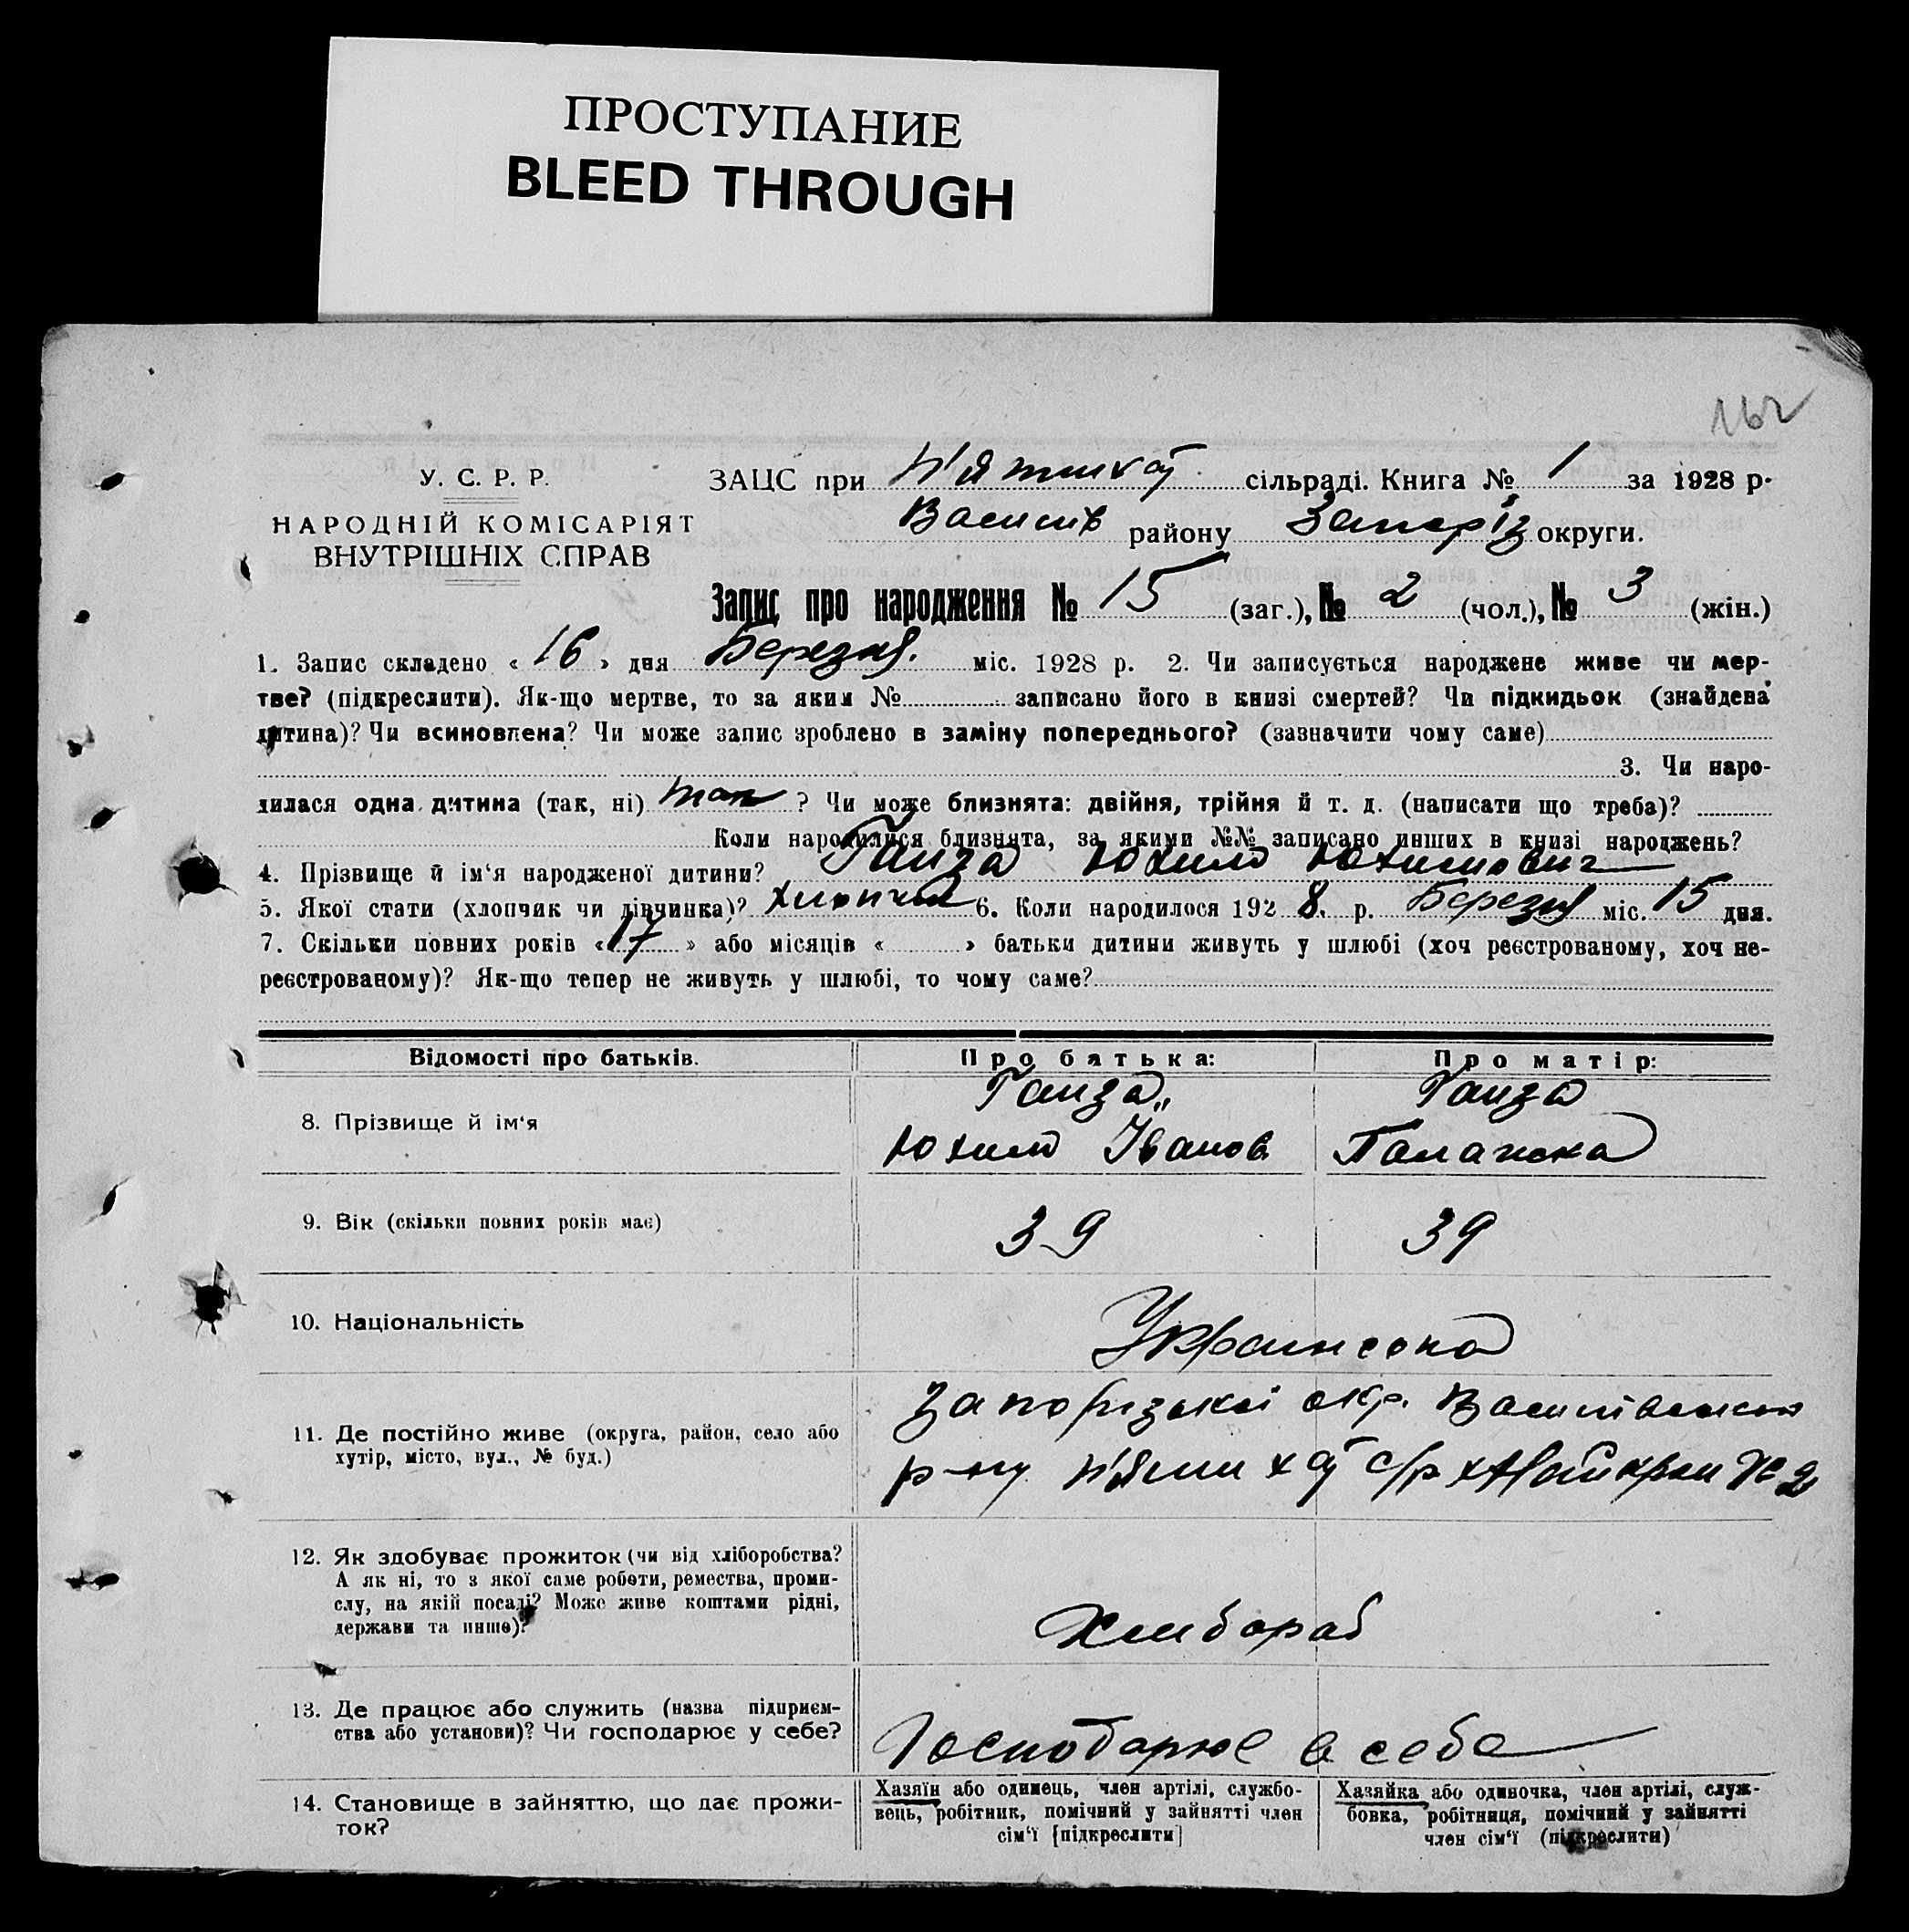 ПРОСТУПАНИЕ
BLEED THROUGH
162
У. С. Р. Р.
НАРОДНІЙ КОМІСАРІЯТ
ВНУТРІШНІХ СПРАВ
ЗАЦС при П'ятихат сільраді. Книга № 1 за 1928 р.
Василів району Запоріз округи.
Запис про народження № 15 (заг.), № 2 (чол.), № 3 (жін.)
1. Запис складено « 16 » дня Березня. міс. 1928 р. 2. Чи записується народжене живе чи мер-
тве? (підкреслити). Як-що мертве, то за яким № записано його в книзі смертей? Чи підкидьок (знайдена
дитина)? Чи всиновлена? Чи може запис зроблено в заміну попереднього? (зазначити чому саме)
3. Чи наро-
дилася одна дитина (так, ні) так ? Чи може близнята: двійня, трійня й т. д. (написати що треба)?
Коли народилися близнята, за якими №№ записано инших в книзі народжень?
4. Прізвище й ім'я народженої дитини? Ганза Юхим Юхимович
5. Якої стати (хлопчик чи дівчинка)? хлопчик 6. Коли народилося 1928. р. Березня міс. 15 дня.
7. Скільки повних років « 17 » або місяців « » батьки дитини живуть у шлюбі (хоч реєстрованому, хоч не-
реєстрованому)? Як-що тепер не живуть у шлюбі, то чому саме?
Відомості про батьків. Про батька: Про матір:
8. Прізвище й ім'я
Ганза Ганза
Юхим Іванов Палажка
9. Вік (скільки повних років має) 39 39
10. Національність Українська
11. Де постійно живе (округа, район, село або
хутір, місто, вул., № буд.)
Запорізької окр. Василівської
р-ну П'ятихат с/р № 2
12. Як здобуває прожиток (чи від хліборобства?
А як ні, то з якої саме роботи, ремества, проми-
слу, на якій посаді? Може живе коштами рідні,
держави та инше)?
Хлибороб
13. Де працює або служить (назва підприєм-
ства або установи)? Чи господарює у себе?
Господарює в себе
14. Становище в зайняттю, що дає прожи-
ток?
Хазяїн або одинець, член артілі, службо-
вець, робітник, помічний у зайнятті член
сім'ї [підкреслити]
Хазяйка або одиночка, член артілі, служ-
бовка, робітниця, помічний у зайнятті
член сім'ї (підкреслити)